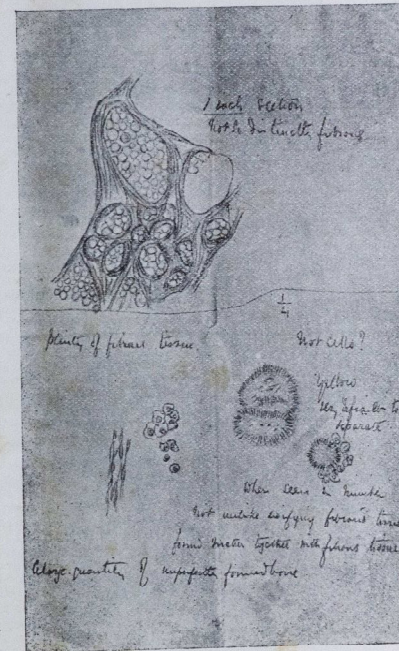 1 inch section
not distinctly fibrous
1/4
plenty of fibrous tissue.
Not cells?
Yellow
Very difficult to
separate
When seen in number
not unlike ossifying fibrous tissue
found matter together with fibrous tissue
large quantity of imperfectly formed bone